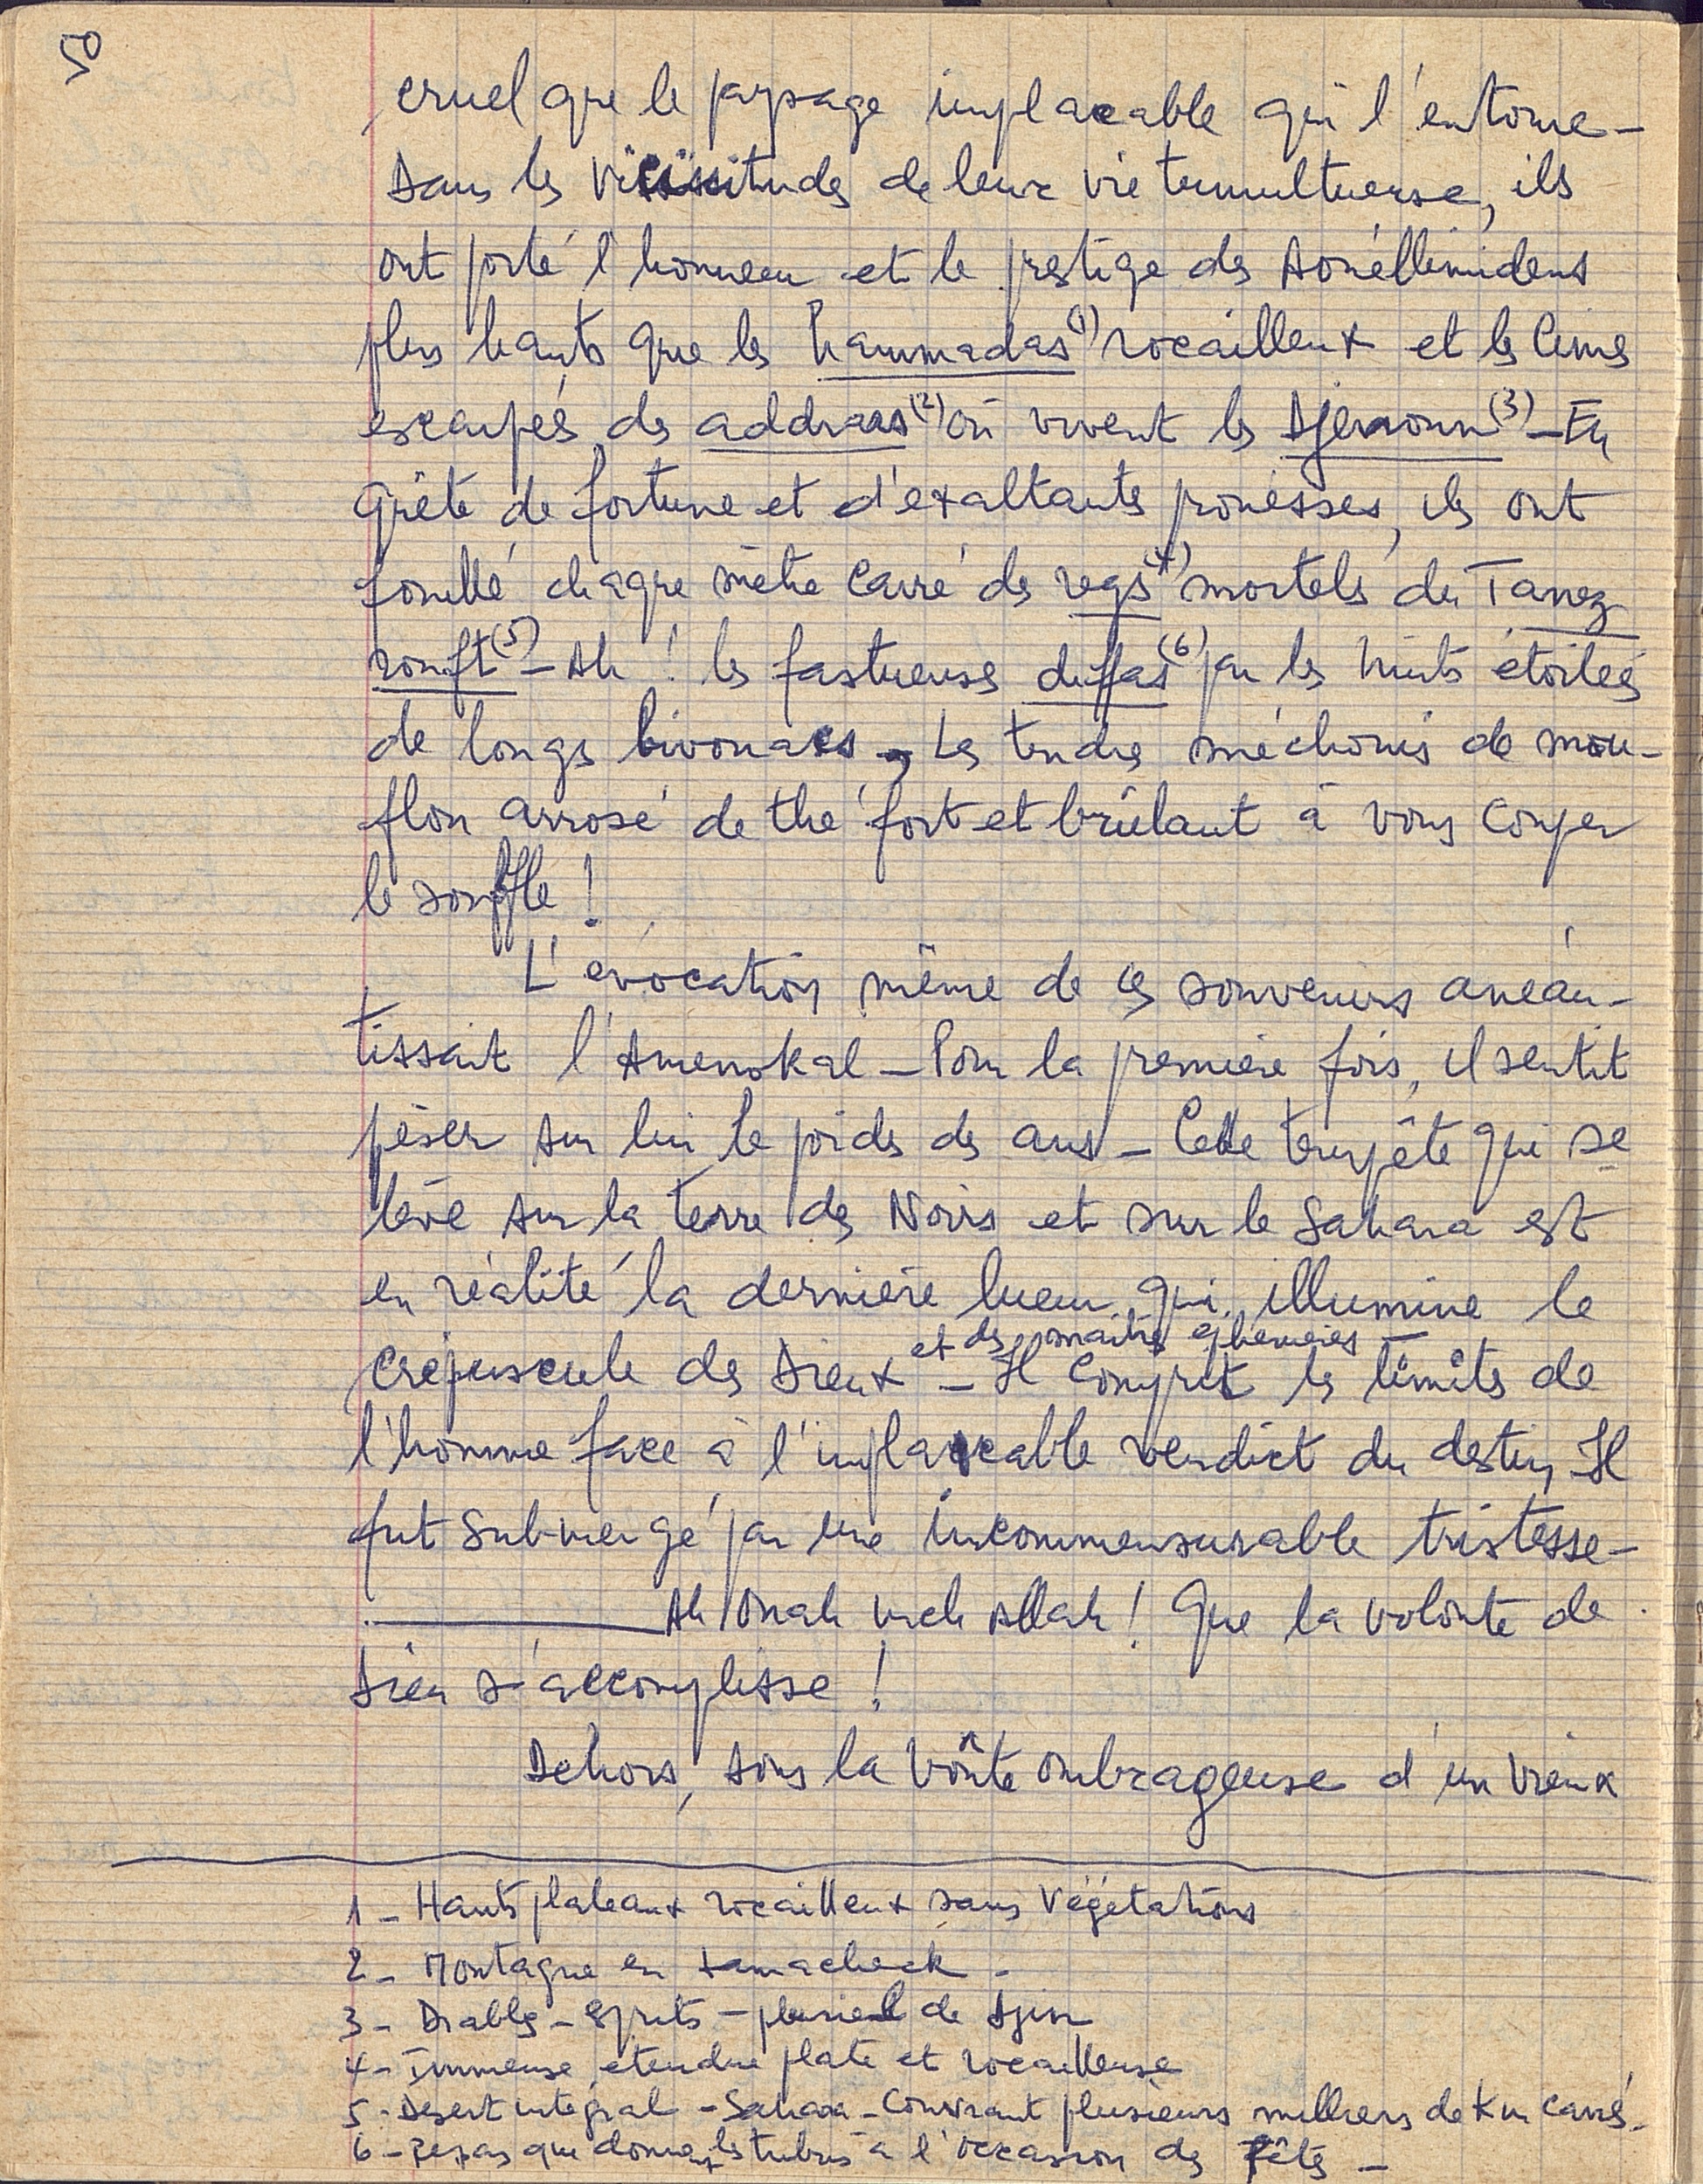 50
cruel que le paysage implacable qui l'entoure -
Dans les vicissitudes de leur vie tumultueuse, ils
ont porté l'honneur et le prestige des Aouéllimidens
plus hauts que les hammadas(1) rocailleux et les cimes
escarpés des addraas(2) où vivent les Djenoun(3) - En
quête de fortune et d'exaltants prouésses, ils ont
fouillé chaque mètre carré des regs(4) mortels du Tanez
rouft(5) - Ah ! les fastueuses diffas(6) par les nuits étoilés
de longs bivouacs, Les tendres méchouis de mou-
flon arrosé de thé fort et brûlant à vous couper
le souffle !
L'évocation même de ces souvenirs anéan-
tissait l'Amenokal - Pour la première fois, il sentit
pèser sur lui le poids des ans - Cette tempête qui se
lève sur la terre des Noirs et sur le Sahara est
en réalité la dernière lueur qui illumine le
et des maitres ephemères
crépuscule des Dieux - Il comprit les limites de
l'homme face à l'implacable verdict du destin, Il
fut submergé par une incommensurable tristesse -
Ah Ouah Allah ! Que la volonte de
Dieu s'accomplisse !
Dehors, sous la voûte ombrageuse d'un vieux
1 - Hauts plateaux rocailleux sans végétations
2 - Montagne en tamacheck -
3 - Diables - Esprits - pluriel de Djin
4 - Immense étendue plate et rocailleuse
5 - Desert intégral - Sahara - Couvrant plusieurs milliers de Km carrés -
6 - Repas que donnent les tribus à l'occasion des fêtes -